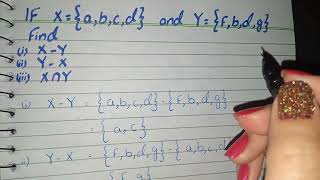 IF X={a,b,c,d} and Y={f,b,d,g}
Find
(i) X-Y
(ii) Y-X
(iii) X∩Y
i) X-Y = {a,b,c,d}-{f,b,d,g}
= {a,c}
ii) Y-X = {f,b,d,g}-{a,b,c,d
{f,g}